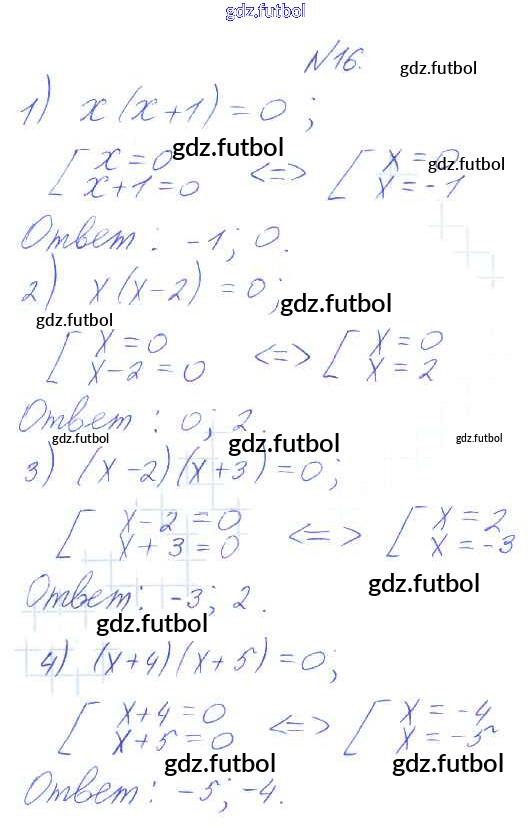 gdz.futbol
N16. gdz.futbol
1) x(x+1)=0;
[ x=0 gdz.futbol <=> [ x=0 gdz.futbol
x+1=0 x=-1
Ответ: -1; 0.
2) x(x-2)=0; gdz.futbol
gdz.futbol
[ x=0 <=> [ x=0
x-2=0 x=2
Ответ: 0; 2.
gdz.futbol gdz.futbol gdz.futbol
3) (x-2)(x+3)=0;
[ x-2=0 <=> [ x=2
x+3=0 x=-3
gdz.futbol
Ответ: -3; 2.
gdz.futbol
4) (x+4)(x+5)=0;
[ x+4=0 <=> [ x=-4
x+5=0 x=-5
gdz.futbol gdz.futbol
Ответ: -5; -4.